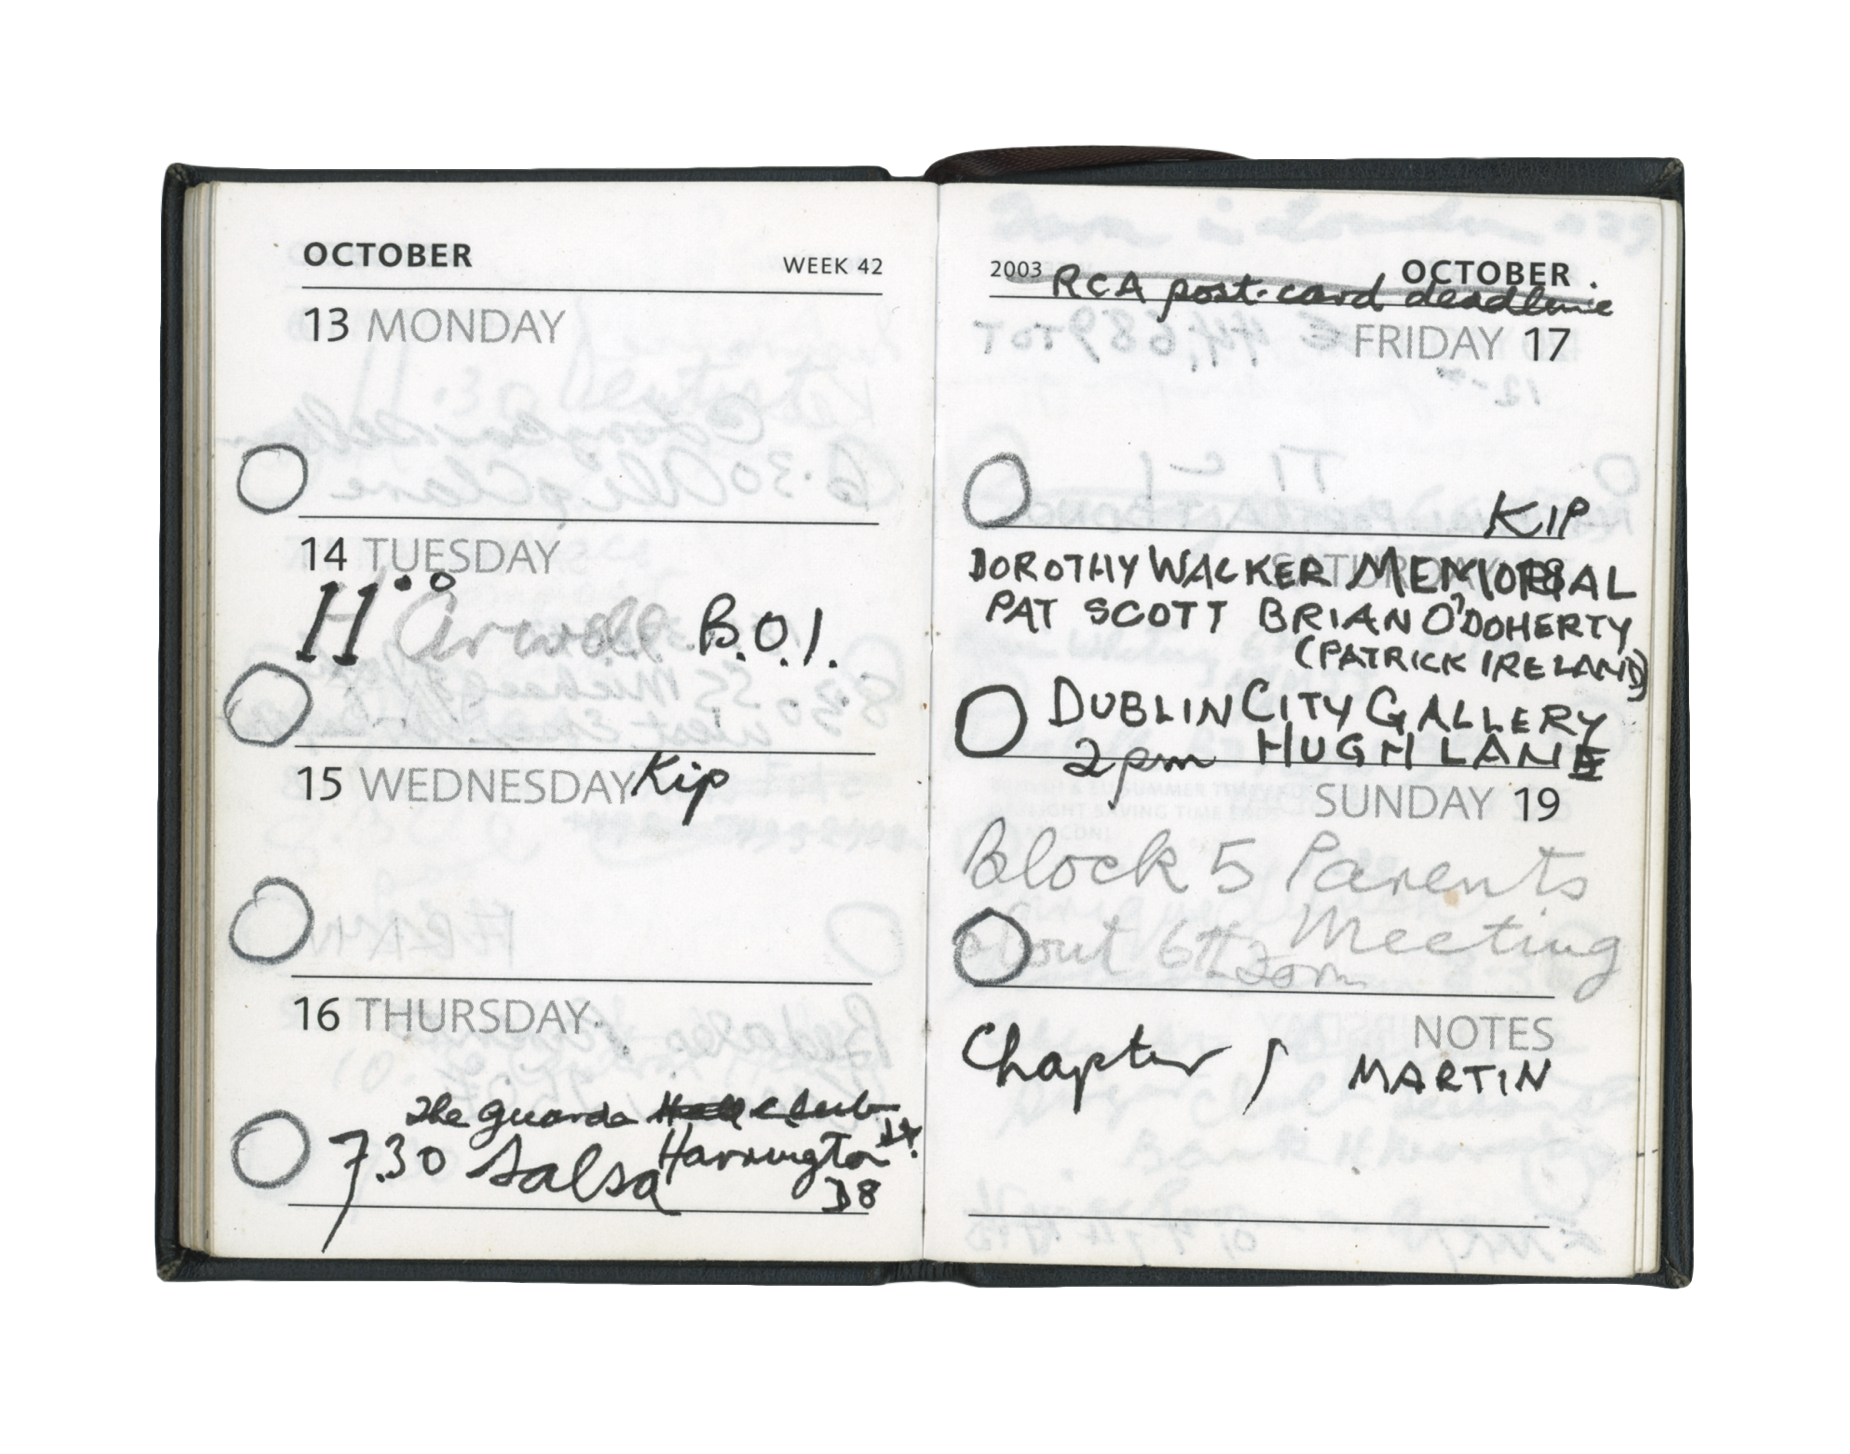 OCTOBER WEEK 42
13 MONDAY
14 TUESDAY
11.00 B.O.I.
15 WEDNESDAY Kip
16 THURSDAY
The Guarda
7.30 Salsa Harrington St.
D8
2003 OCTOBER
RCA post-card deadline
FRIDAY 17
KIP
SATURDAY 18
DOROTHY WALKER MEMORIAL
PAT SCOTT BRIAN O'DOHERTY
(PATRICK IRELAND)
DUBLIN CITY GALLERY
2pm HUGH LANE
SUNDAY 19
Block 5 Parents
Meeting
about 6th
NOTES
Chapter / MARTIN